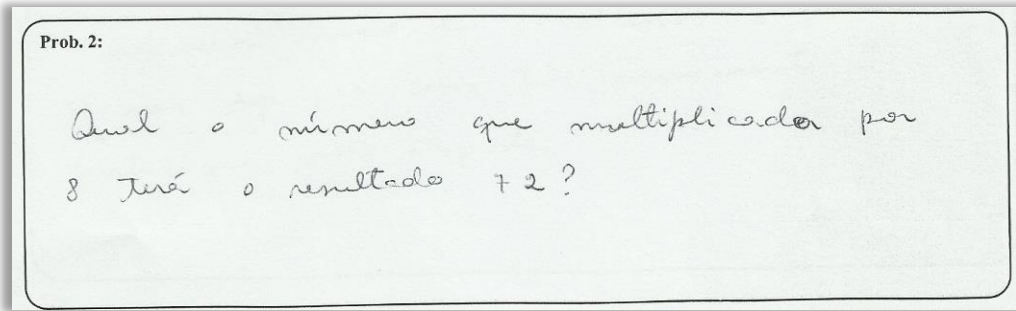 Prob. 2:
Qual o número que multiplicado por
8 terá o resultado 72?